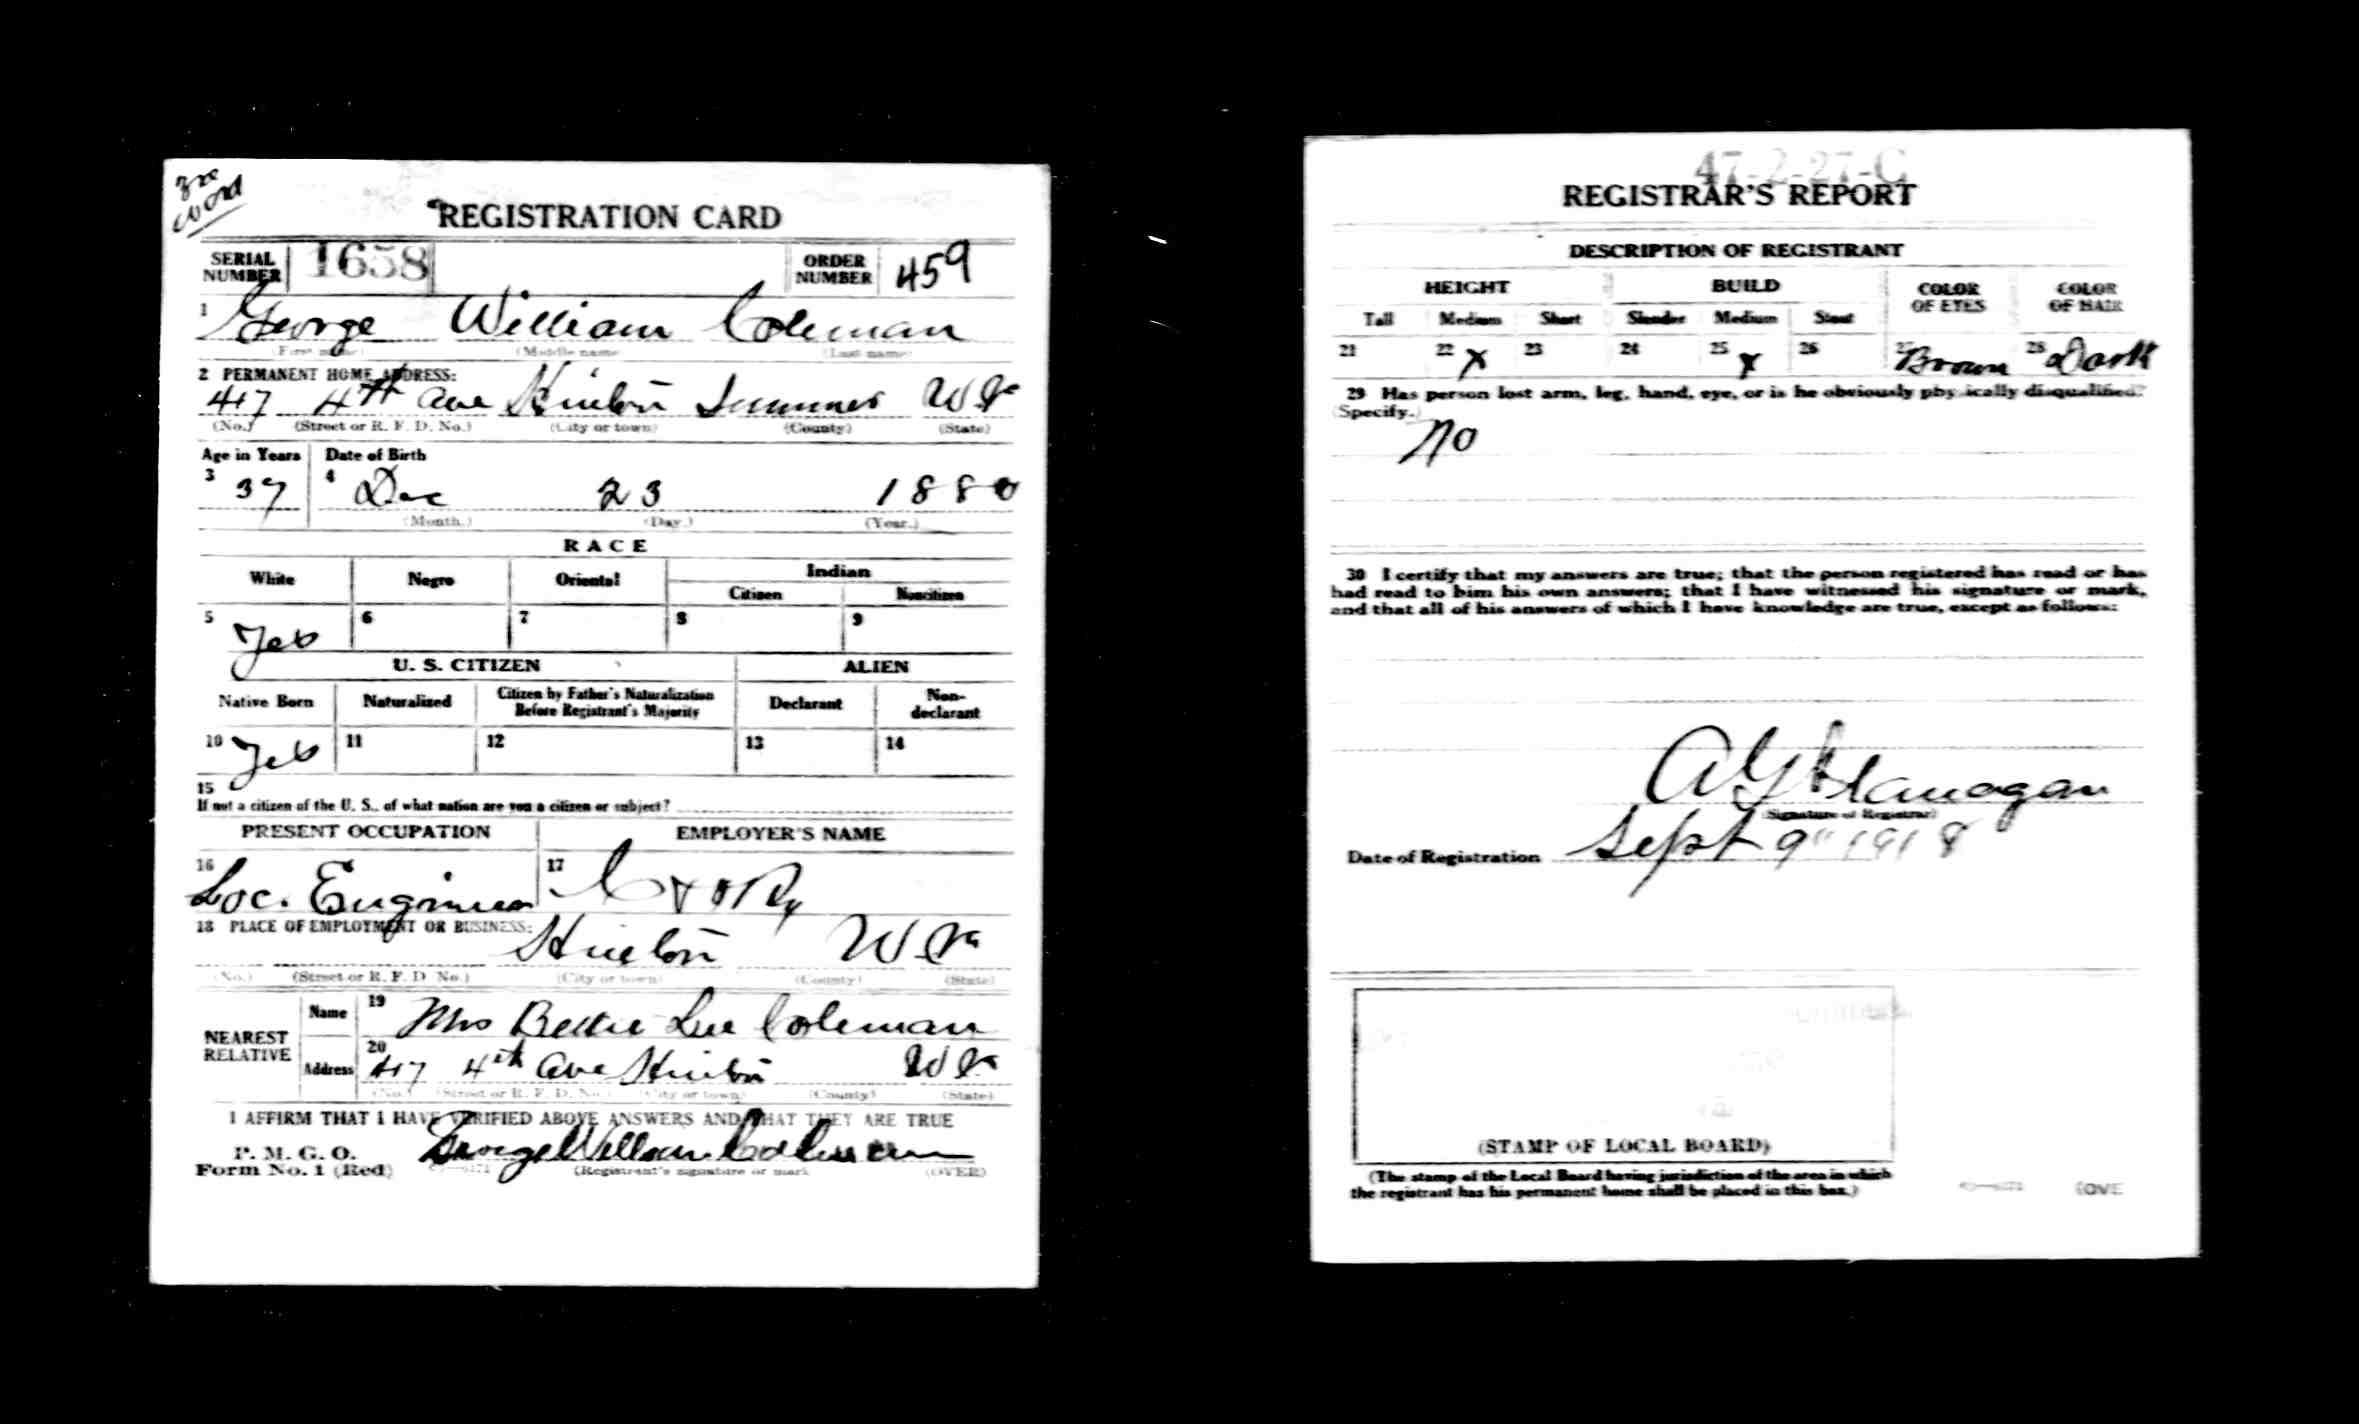 3rd
Ward
REGISTRATION CARD
SERIAL NUMBER 1658 ORDER NUMBER 459
1 George William Coleman
(First name) (Middle name) (Last name)
2 PERMANENT HOME ADDRESS:
417 4th ave Hinton Summers W Va
(No.) (Street or R. F. D. No.) (City or town) (County) (State)
Age in Years Date of Birth
3 37 4 Dec 23 1880
(Month.) (Day.) (Year.)
RACE
White Negro Oriental Indian
Citizen Noncitizen
5 Yes 6 7 8 9
U. S. CITIZEN ALIEN
Native Born Naturalized Citizen by Father's Naturalization Before Registrant's Majority Declarant Non-declarant
10 Yes 11 12 13 14
15
If not a citizen of the U. S., of what nation are you a citizen or subject?
PRESENT OCCUPATION EMPLOYER'S NAME
16 Loc. Engineer 17 C + O Ry
18 PLACE OF EMPLOYMENT OR BUSINESS:
Hinton W Va
(No.) (Street or R. F. D. No.) (City or town) (County) (State)
NEAREST RELATIVE
Name 19 Mrs Bettie Lee Coleman
Address 20 417 4th ave Hinton W Va
(No.) (Street or R. F. D. No.) (City or town) (County) (State)
I AFFIRM THAT I HAVE VERIFIED ABOVE ANSWERS AND THAT THEY ARE TRUE
P. M. G. O.
Form No. 1 (Red) George William Coleman
(Registrant's signature or mark) (OVER)
47-2-27-C
REGISTRAR'S REPORT
DESCRIPTION OF REGISTRANT
HEIGHT BUILD COLOR OF EYES COLOR OF HAIR
Tall Medium Short Slender Medium Stout
21 22 X 23 24 25 X 26 27 Brown 28 Dark
29 Has person lost arm, leg, hand, eye, or is he obviously physically disqualified?
(Specify.)
No
30 I certify that my answers are true; that the person registered has read or has
had read to him his own answers; that I have witnessed his signature or mark,
and that all of his answers of which I have knowledge are true, except as follows:
A G Flanagan
(Signature of Registrar)
Date of Registration Sept 9" 1918
(STAMP OF LOCAL BOARD)
(The stamp of the Local Board having jurisdiction of the area in which
the registrant has his permanent home shall be placed in this box.)
(OVE